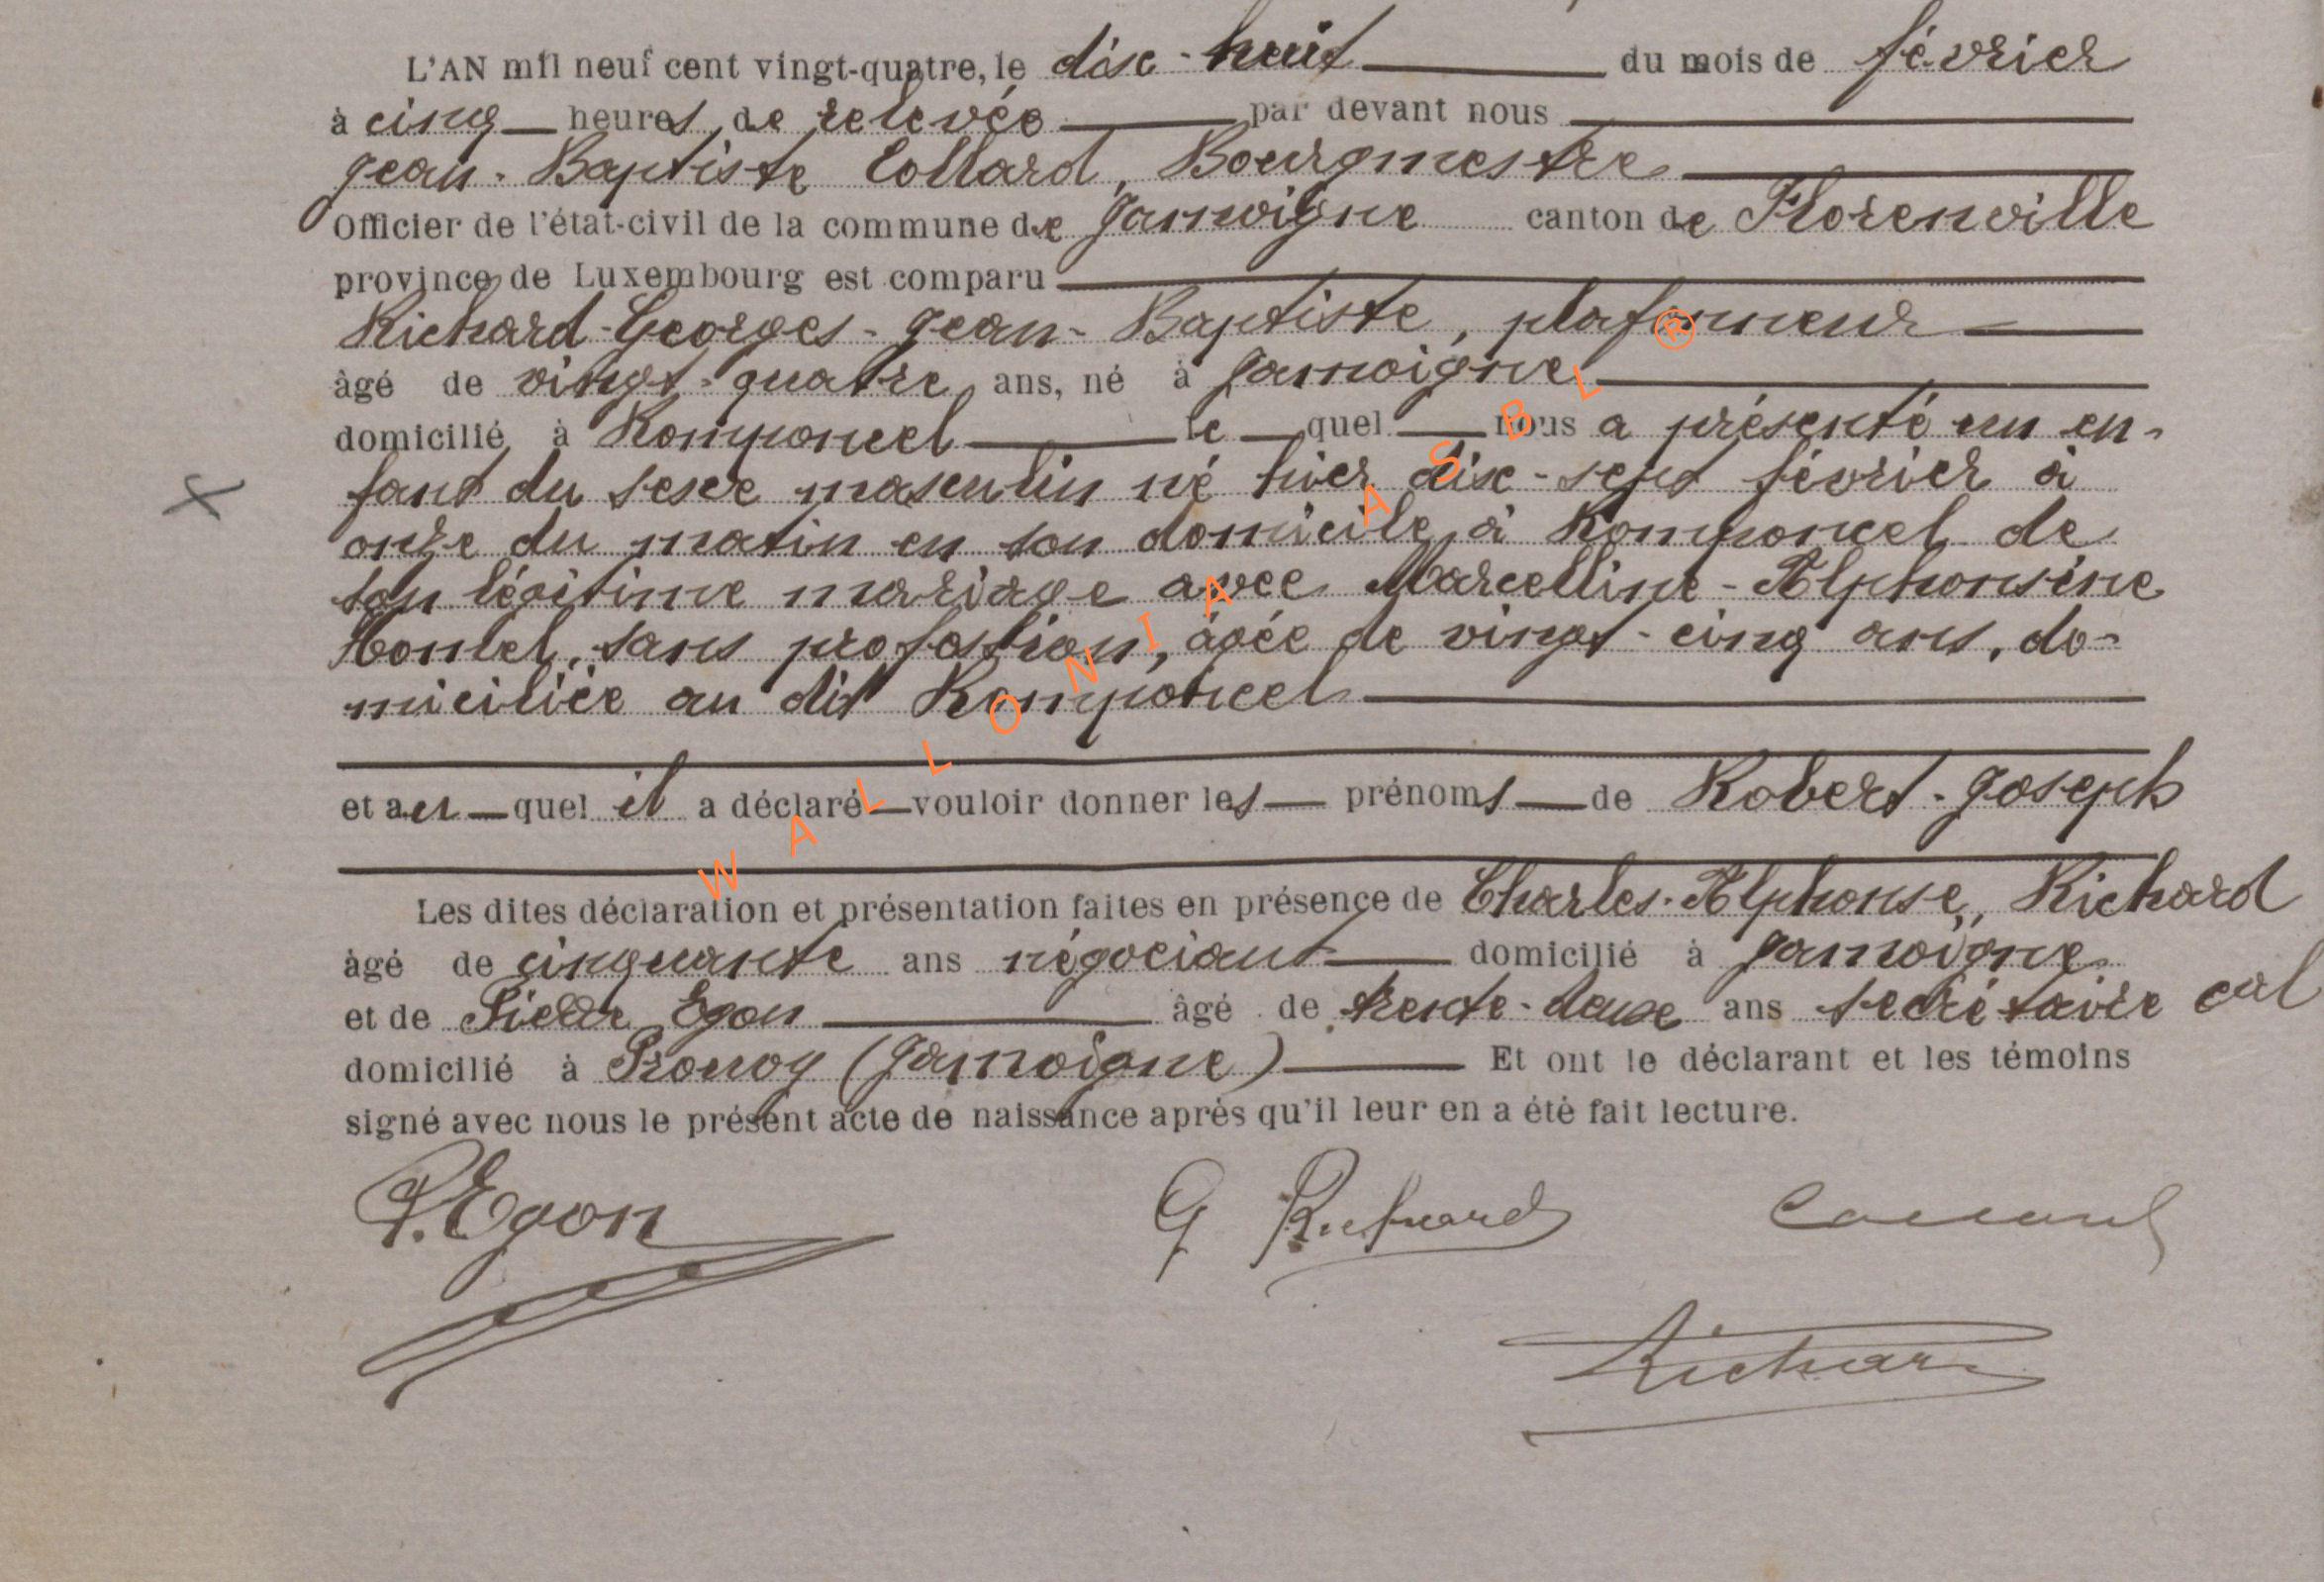 L'AN mil neuf cent vingt-quatre, le dix-huit du mois de février
à cinq heures de relevée par devant nous
Jean-Baptiste Collard, Bourgmestre
Officier de l'état-civil de la commune de Jamoigne canton de Florenville
province de Luxembourg est comparu
Richard-Georges-Jean-Baptiste, plafonneur
âgé de vingt-quatre ans, né à Jamoigne
domicilié à Romponcel le quel nous a présenté un en-
fant du sexe masculin né hier dix-sept février à
onze du matin en son domicile à Romponcel de
son légitime mariage avec Marcelline-Alphonsine
sans profession, âgée de vingt-cinq ans, do-
miciliée au dit Romponcel
et au quel il a déclaré vouloir donner les prénoms de Robert-Joseph
Les dites déclaration et présentation faites en présence de Charles-Alphonse, Richard
âgé de cinquante ans négociant domicilié à Jamoigne
et de Pierre Egon âgé de trente-deux ans secrétaire cal
domicilié à Prouvy (Jamoigne) Et ont le déclarant et les témoins
signé avec nous le présent acte de naissance après qu'il leur en a été fait lecture.
P. Egon G Richard Collard
Richard
WALLONIA ASBL ®